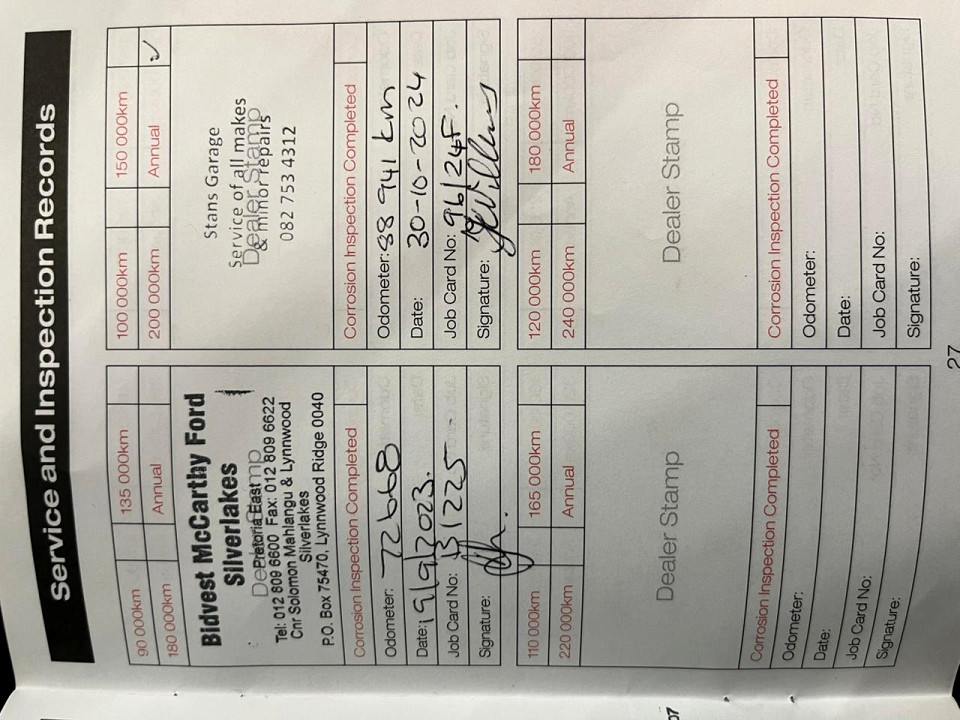 Service and Inspection Records
90 000km 135 000km
180 000km Annual
Bidvest McCarthy Ford
Silverlakes
Dealer Stamp
Pretoria East
Tel: 012 809 6600 Fax: 012 809 6622
Cnr Solomon Mahlangu & Lynnwood
Silverlakes
P.O. Box 75470, Lynnwood Ridge 0040
Corrosion Inspection Completed
Odometer: 72668
Date: 19/9/2023.
Job Card No: 151225
Signature:
100 000km 150 000km
200 000km Annual ✓
Stans Garage
Service of all makes
Dealer Stamp
& minor repairs
082 753 4312
Corrosion Inspection Completed
Odometer: 88 941 km
Date: 30-10-2024
Job Card No: 96/24F.
Signature:
110 000km 165 000km
220 000km Annual
Dealer Stamp
Corrosion Inspection Completed
Odometer:
Date:
Job Card No:
Signature:
120 000km 180 000km
240 000km Annual
Dealer Stamp
Corrosion Inspection Completed
Odometer:
Date:
Job Card No:
Signature:
27